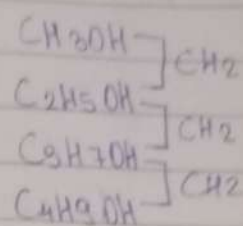 CH3OH
CH2
C2H5OH
CH2
C3H7OH
CH2
C4H9OH